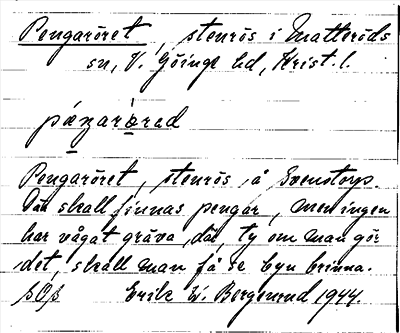 Pengaröret, stenrös i Matteröds
sn, V. Göinge hd, Krist. l.
pæŋarørad
Pengaröret, stenrös, å Svenstorp.
Där skall finnas pengar, men ingen
har vågat gräva, då ty om man gör
det, skall man få se byn brinna.
Erik W. Bergenrud 1944.